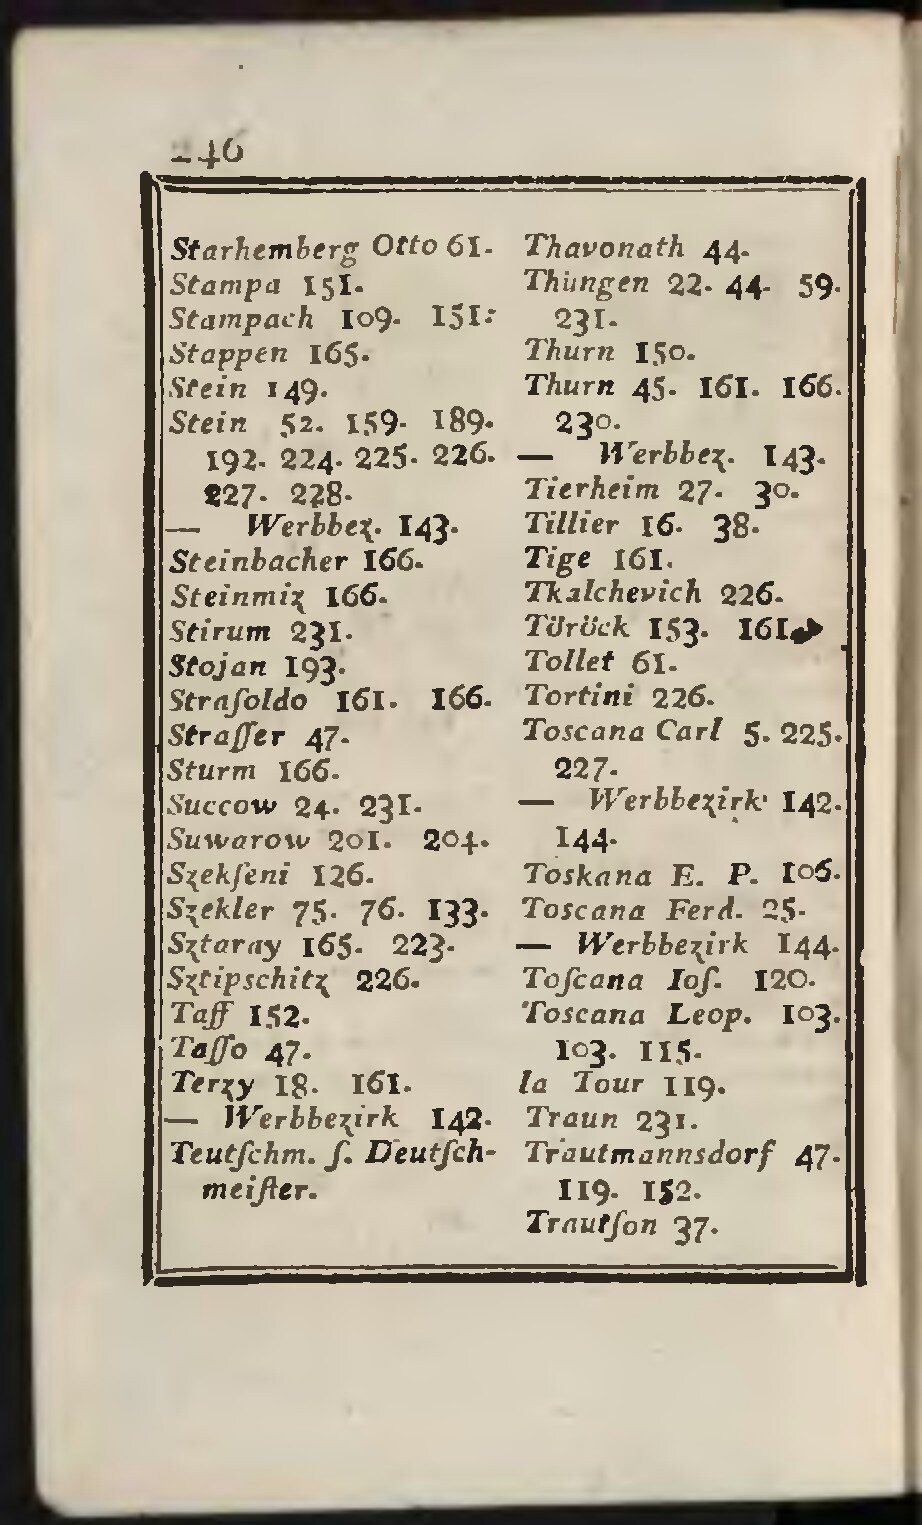 246
Starhemberg Otto 61.
Stampa 151.
Stampach 109. 151.
Stappen 165.
Stein 149.
Stein 52. 159. 189.
192. 224. 225. 226.
227. 228.
— Werbbez. 143.
Steinbacher 166.
Steinmiz 166.
Stirum 231.
Stojan 193.
Straſoldo 161. 166.
Straſſer 47.
Sturm 166.
Succow 24. 231.
Suwarow 201. 204.
Szekſeni 126.
Szekler 75. 76. 133.
Sztaray 165. 223.
Sztipschitz 226.
Taff 152.
Taſſo 47.
Terzy 18. 161.
— Werbbezirk 142.
Teutſchm. ſ. Deutſch-
meiſter.
Thavonath 44.
Thüngen 22. 44. 59.
231.
Thurn 150.
Thurn 45. 161. 166.
230.
— Werbbez. 143.
Tierheim 27. 30.
Tillier 16. 38.
Tige 161.
Tkalchevich 226.
Töröck 153. 161.
Tollet 61.
Tortini 226.
Toscana Carl 5. 225.
227.
— Werbbezirk 142.
144.
Toskana E. P. 106.
Toscana Ferd. 25.
— Werbbezirk 144.
Toſcana Ioſ. 120.
Toscana Leop. 103.
103. 115.
la Tour 119.
Traun 231.
Trautmannsdorf 47.
119. 152.
Trautſon 37.